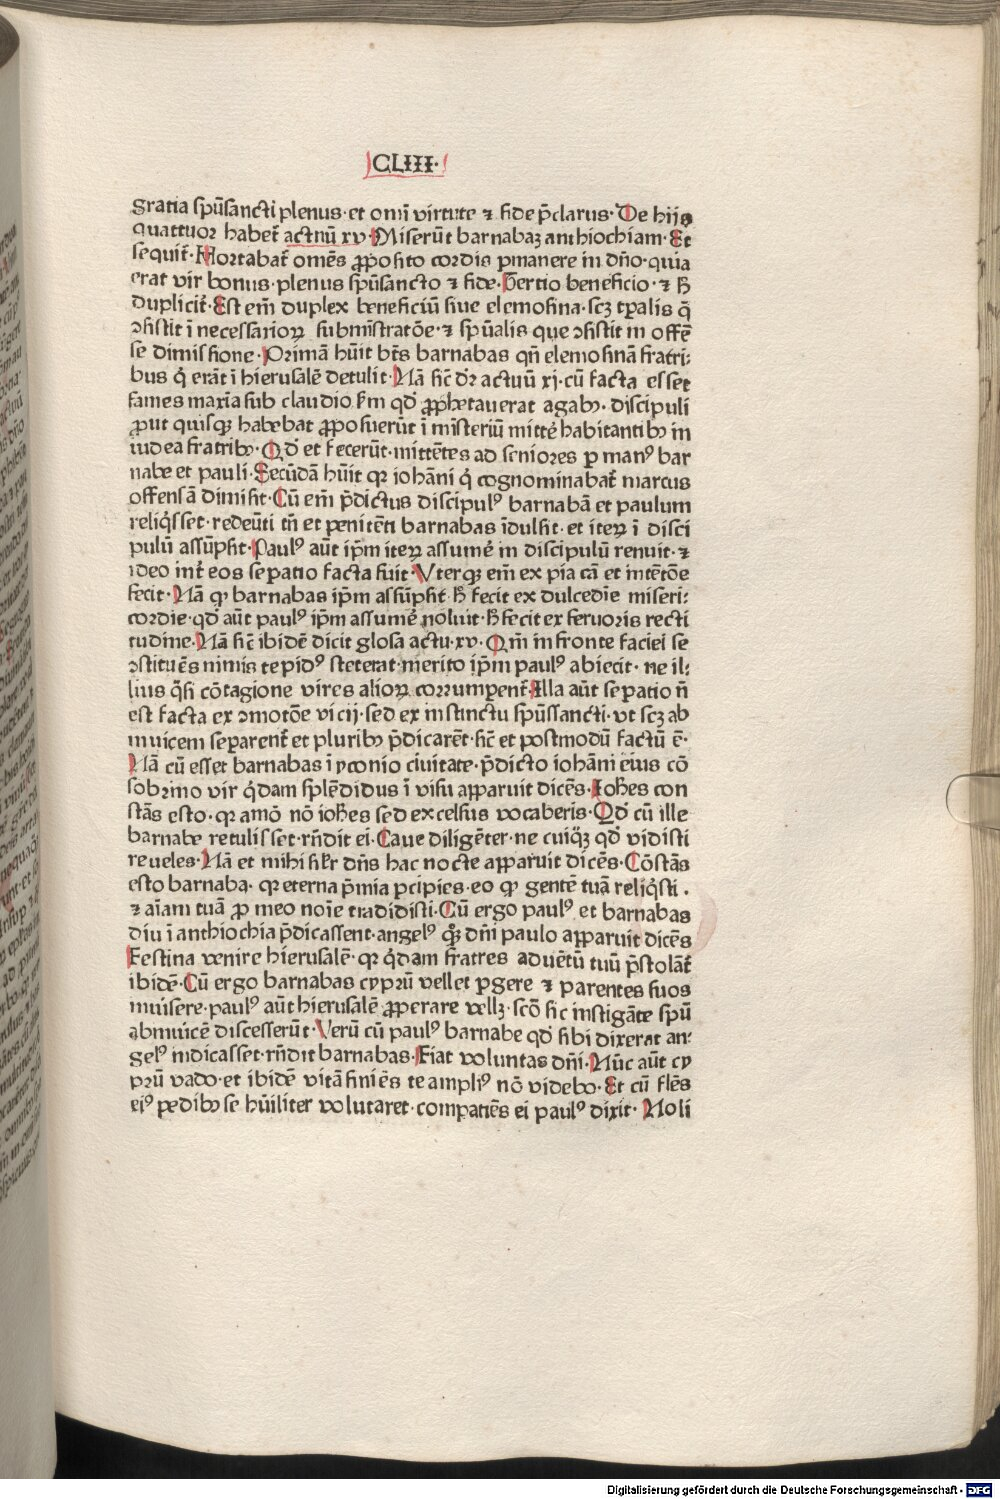 CLIII·
gratia spūsancti plenus·et om̄i virtute ⁊ fide p̄clarus· De hijs
quattuor habet̄ actuū xv·Miserūt barnabaꝫ anthiochiam·Et
sequit̄·Hortabat̄ omēs ꝓposito cordis ꝑmanere in dn̄o·quia
erat vir bonus·plenus spūsancto ⁊ fide·Tertio beneficio·⁊ ħ
duplicit̄·Est em̄ duplex beneficiū siue elemosina·scꝫ tꝑalis q̄
ↄsistit ī necessarioꝝ submīstratōe·⁊ spūalis que ↄsistit in offē
se dimissione·Primā hūit bt̄s barnabas qn̄ elemosinā fratri:
bus q̇ erāt ī hierusalē detulit·Nā sic̄ dꝛ actuū xj·cū facta esset
fames maxīa sub claudio ẜm qd̄ ꝓphetauerat agabꝰ·discipuli
ꝓut quisqꝫ habebat ꝓposuerūt ī mīsteriū mitte᷑ habitantibꝰ in
iudea fratribꝰ·Qd̄ et fecerūt·mittētes ad seniores ꝑ manꝰ bar
nabe et pauli·Secūdā hūit qꝛ iohāni q̇ cognominabat̄ marcus
offensā dimisit·Cū em̄ p̄dictus discipulꝰ barnabā et paulum
reliq̇sset·redeūti tn̄ et penitēti barnabas īdulsit·et iteꝝ ī disci
pulū assūpsit·Paulꝰ aūt ip̄m iteꝝ assume᷑ in discipulū renuit·⁊
ideo int̄ eos sepatio facta fuit·Vterqꝫ em̄ ex pia cā et intētōe
fecit·Nā ꝙ barnabas ip̄m assūpsit ħ fecit ex dulcedie miseri:
cordie·qd̄ aūt paulꝰ ip̄m assume᷑ noluit·ħ fecit ex feruoris recti
tudine·Nā sic̄ ibidē dicit glosa actu·xv·Qm̄ in fronte faciei se
ↄstituēs nimis tepidꝰ steterat·merito ip̄m paulꝰ abiecit·ne il:
lius q̇si cōtagione vires alioꝝ corrumpent̄·Illa aūt sepatio n̄
est facta ex ↄmotōe vicij·sed ex instinctu spūssancti·vt scꝫ ab
inuicem separent̄ et pluribꝰ p̄dicarēt·sic̄ et postmodū factū ē·
Nā cū esset barnabas ī yconio ciuitate·p̄dicto iohāni eius cō
sobrino vir q̇dam splēdidus ī visu apparuit dicēs·Ioħes con
stās esto·qꝛ amō nō ioħes sed excelsus vocaberis·Qd̄ cū ille
barnabe retulisset·rn̄dit ei·Caue diligēter·ne cuiq̇ꝫ qd̄ vidisti
reueles·Nā et mihi sil̄r dn̄s hac nocte apparuit dicēs·Cōstās
esto barnaba·qꝛ eterna p̄mia ꝑcipies·eo ꝙ gentē tuā reliq̇sti·
⁊ aīam tuā ꝓ meo noīe tradidisti·Cū ergo paulꝰ et barnabas
diu ī anthiochia p̄dicassent·angelꝰ q̇ꝫ dn̄i paulo apparuit dicēs
Festina venire hierusalē·qꝛ q̇dam fratres aduētū tuū p̄stolāt̄
ibidē·Cū ergo barnabas cyprū vellet ꝑgere ⁊ parentes suos
inuisere·paulꝰ aūt hierusalē ꝓperare vellꝫ·scō sic instigāte spū
abinuicē discesserūt·Verū cū paulꝰ barnabe qd̄ sibi dixerat an:
gelꝰ indicasset·rn̄dit barnabas·Fiat voluntas dn̄i·Nūc aūt cy
prū vado·et ibidē vitā finiēs te ampliꝰ nō videbo·Et cū flēs
eiꝰ pedibꝰ se hūiliter volutaret·compatiēs ei paulꝰ dixit·Noli
Digitalisierung gefördert durch die Deutsche Forschungsgemeinschaft · DFG